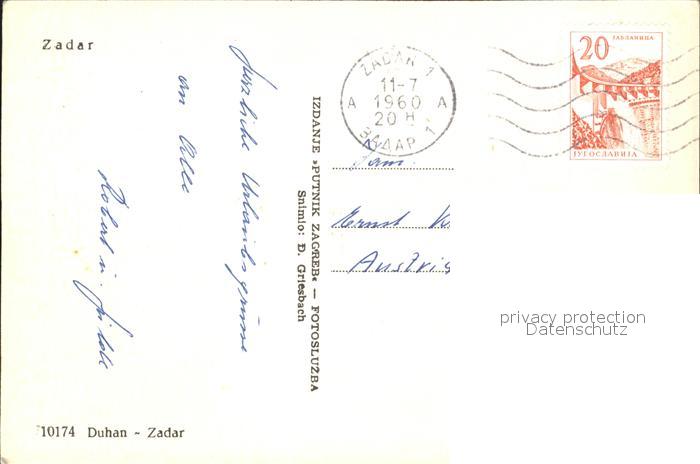 Zadar
Herzliche Urlaubsgrüsse
an Alle
Robert u.
IZDANJE »PUTNIK ZAGREB« — FOTOSLUŽBA
Snimio: Đ. Griesbach
ZADAR 1
11-7
A 1960 A
20 H
ЗАДАР 1
20 ЈАБЛАНИЦА
ЈУГОСЛАВИЈА
Fam.
Ernst K
Austria
privacy protection
Datenschutz
10174 Duhan - Zadar